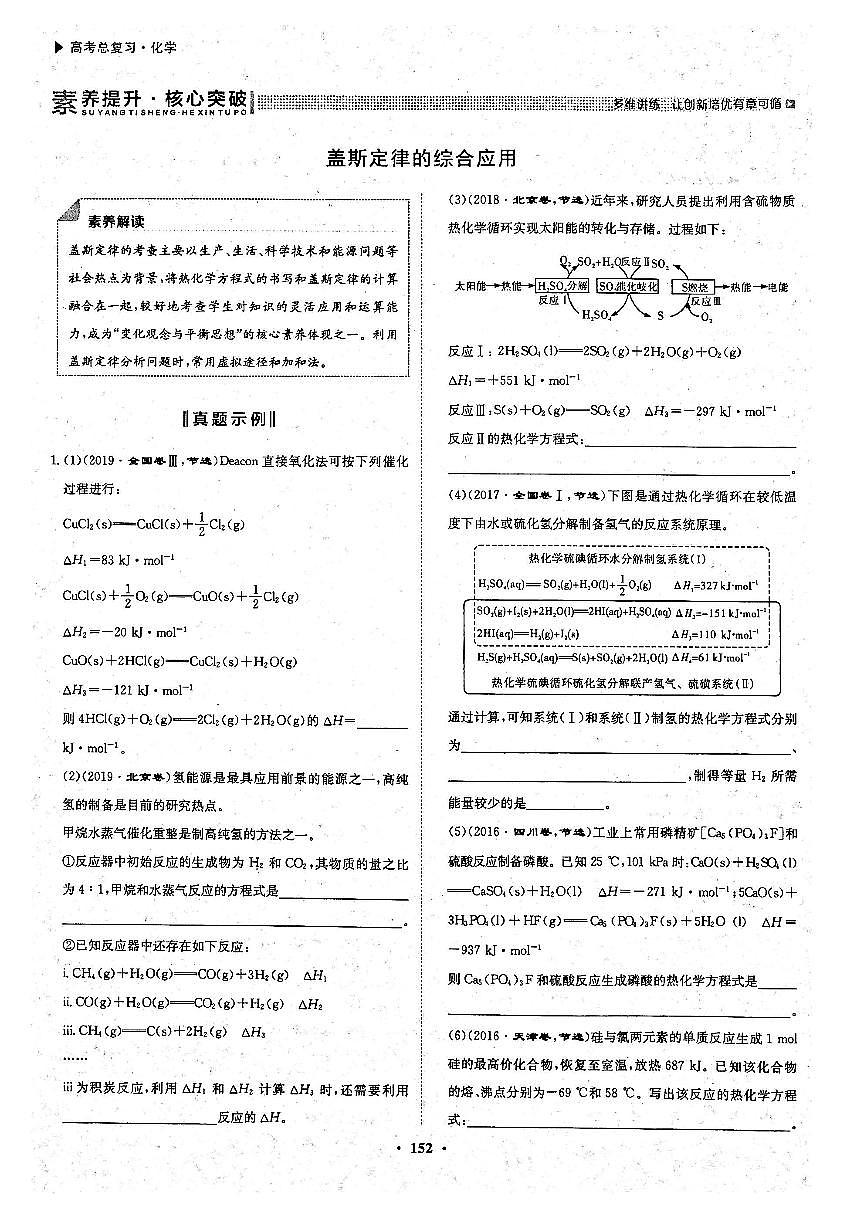 高考总复习·化学
素养提升·核心突破
SUYANGTISHENG·HEXINTUPO
多维讲练 让创新培优有章可循
盖斯定律的综合应用
素养解读
盖斯定律的考查主要以生产、生活、科学技术和能源问题等
社会热点为背景,将热化学方程式的书写和盖斯定律的计算
融合在一起,较好地考查学生对知识的灵活应用和运算能
力,成为“变化观念与平衡思想”的核心素养体现之一。利用
盖斯定律分析问题时,常用虚拟途径和加和法。
真题示例
1.(1)(2019·全国卷Ⅲ,节选)Deacon直接氧化法可按下列催化
过程进行:
CuCl₂(s)══CuCl(s)+1/2Cl₂(g)
△H₁=83 kJ·mol⁻¹
CuCl(s)+1/2O₂(g)══CuO(s)+1/2Cl₂(g)
△H₂=-20 kJ·mol⁻¹
CuO(s)+2HCl(g)══CuCl₂(s)+H₂O(g)
△H₃=-121 kJ·mol⁻¹
则4HCl(g)+O₂(g)══2Cl₂(g)+2H₂O(g)的△H=______
kJ·mol⁻¹。
(2)(2019·北京卷)氢能源是最具应用前景的能源之一,高纯
氢的制备是目前的研究热点。
甲烷水蒸气催化重整是制高纯氢的方法之一。
①反应器中初始反应的生成物为H₂和CO₂,其物质的量之比
为4∶1,甲烷和水蒸气反应的方程式是______
______。
②已知反应器中还存在如下反应:
i. CH₄(g)+H₂O(g)══CO(g)+3H₂(g) △H₁
ii. CO(g)+H₂O(g)══CO₂(g)+H₂(g) △H₂
iii. CH₄(g)══C(s)+2H₂(g) △H₃
……
iii为积炭反应,利用△H₁和△H₂计算△H₃时,还需要利用
______反应的△H。
(3)(2018·北京卷,节选)近年来,研究人员提出利用含硫物质
热化学循环实现太阳能的转化与存储。过程如下:
O₂ SO₂+H₂O 反应Ⅱ SO₂
太阳能→热能→ H₂SO₄分解 SO₂催化歧化 S燃烧 →热能→电能
反应Ⅰ 反应Ⅲ
H₂SO₄ S O₂
反应Ⅰ:2H₂SO₄(l)══2SO₂(g)+2H₂O(g)+O₂(g)
△H₁=+551 kJ·mol⁻¹
反应Ⅲ:S(s)+O₂(g)══SO₂(g) △H₃=-297 kJ·mol⁻¹
反应Ⅱ的热化学方程式:______
______。
(4)(2017·全国卷Ⅰ,节选)下图是通过热化学循环在较低温
度下由水或硫化氢分解制备氢气的反应系统原理。
热化学硫碘循环水分解制氢系统(Ⅰ)
H₂SO₄(aq)══SO₂(g)+H₂O(l)+1/2O₂(g) △H₁=327 kJ·mol⁻¹
SO₂(g)+I₂(s)+2H₂O(l)══2HI(aq)+H₂SO₄(aq) △H₂=-151 kJ·mol⁻¹
2HI(aq)══H₂(g)+I₂(s) △H₃=110 kJ·mol⁻¹
H₂S(g)+H₂SO₄(aq)══S(s)+SO₂(g)+2H₂O(l) △H₄=61 kJ·mol⁻¹
热化学硫碘循环硫化氢分解联产氢气、硫磺系统(Ⅱ)
通过计算,可知系统(Ⅰ)和系统(Ⅱ)制氢的热化学方程式分别
为______、
______,制得等量H₂所需
能量较少的是______。
(5)(2016·四川卷,节选)工业上常用磷精矿[Ca₅(PO₄)₃F]和
硫酸反应制备磷酸。已知25 ℃,101 kPa时:CaO(s)+H₂SO₄(l)
══CaSO₄(s)+H₂O(l) △H=-271 kJ·mol⁻¹;5CaO(s)+
3H₃PO₄(l)+HF(g)══Ca₅(PO₄)₃F(s)+5H₂O(l) △H=
-937 kJ·mol⁻¹
则Ca₅(PO₄)₃F和硫酸反应生成磷酸的热化学方程式是______
______。
(6)(2016·天津卷,节选)硅与氯两元素的单质反应生成1 mol
硅的最高价化合物,恢复至室温,放热687 kJ。已知该化合物
的熔、沸点分别为-69 ℃和58 ℃。写出该反应的热化学方程
式:______。
·152·